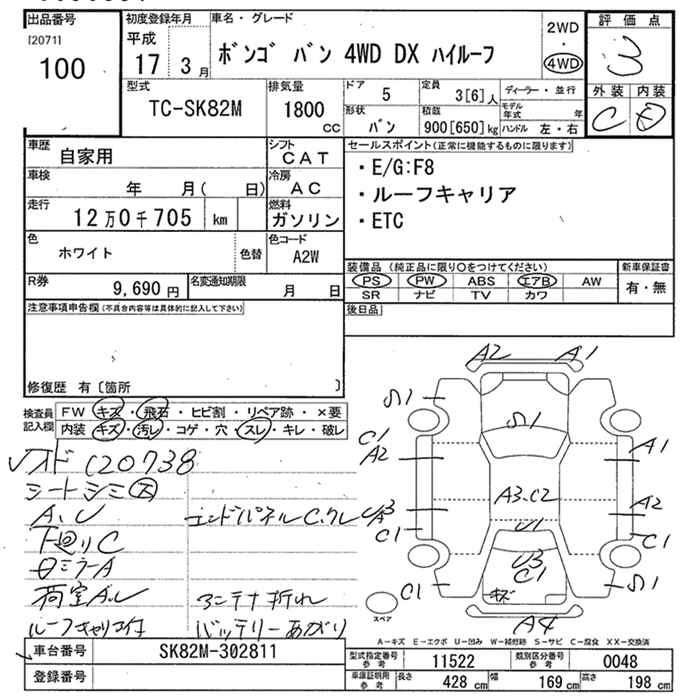 出品番号 初度登録年月 車名・グレード 2WD 評価点
[20711] 平成 ・ 3
100 17 3月 ボンゴ バン 4WD DX ハイルーフ 4WD
型式 排気量 ドア 5 定員 3[6]人 ディーラー・並行 外装 内装
TC-SK82M 1800 CC 形状 バン 積載 900[650]kg モデル年式 年 C D
ハンドル 左・右
車歴 自家用 シフト CAT セールスポイント(正常に機能するものに限ります)
車検 年 月( 日) 冷房 AC ・E/G:F8
走行 12万0千705 km 燃料 ガソリン ・ルーフキャリア
色 ホワイト 色替 色コード A2W ・ETC
R券 9,690円 名変通知期限 月 日 装備品 (純正品に限り○をつけてください) 新車保証書
PS PW ABS エアB AW 有・無
SR ナビ TV カワ
注意事項申告欄(不具合内容等は具体的に記入して下さい) 後日品
修復歴 有〔箇所 〕
検査員記入欄 FW キズ・飛石・ヒビ割・リペア跡・×要
内装 キズ・汚レ・コゲ・穴・スレ・キレ・破レ
A2 A1
S1 S1
C1
A2 A1
A3.C2
A2
U1
C1 C1
U3
C1
C1 キズ S1
A4
スペア
メオド 120738
シートシミ大
A、U エンドパネルC、クレ
下廻りC
ロミラーA
荷室A.U アンテナ折れ
ルーフキャリコ付 バッテリーあがり
A-キズ E-エクボ U-凹み W-補修跡 S-サビ C-腐食 XX-交換済
車台番号 SK82M-302811
登録番号
型式指定番号 参考 11522 類別区分番号 参考 0048
車庫証明用 参考 長さ 428cm 幅 169cm 高さ 198cm